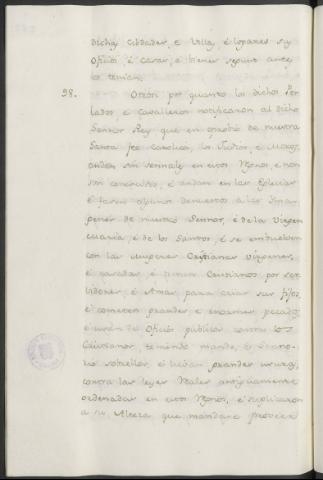 dichas Cibdades, e Villas, é logares sus
Oficios é casas, é tener segunt antes
los tenian.
98. Otrosi por quanto los dichos Per
lados, é Cavalleros notificaron al dicho
Sennor Rey que en oprobio de nuestra
Santa fee Catolica, los Judios, é Moros,
andan sin sennales en estos Regnos, é non
son conoscidos, é andan en las Eglesias
é facen algunos denuestos a las Imag
genes de nuestro Sennor, é de la Virgen
Maria, é de los Santos, é se embuelven
con las mugeres Cristianas Virgenes,
é casadas, é tienen Cristianos por ser
vidores, é Amas para criar sus fijos,
é cometen grandes é enormes pecados,
é usan de Oficios publicos contra los
Cristianos, teniendo mando, é
sobrellos, é lievan grandes usuras,
contra las leyes Reales antiguamente
ordenadas en estos Regnos, é suplicaron
a su Alteza que mandase proveer